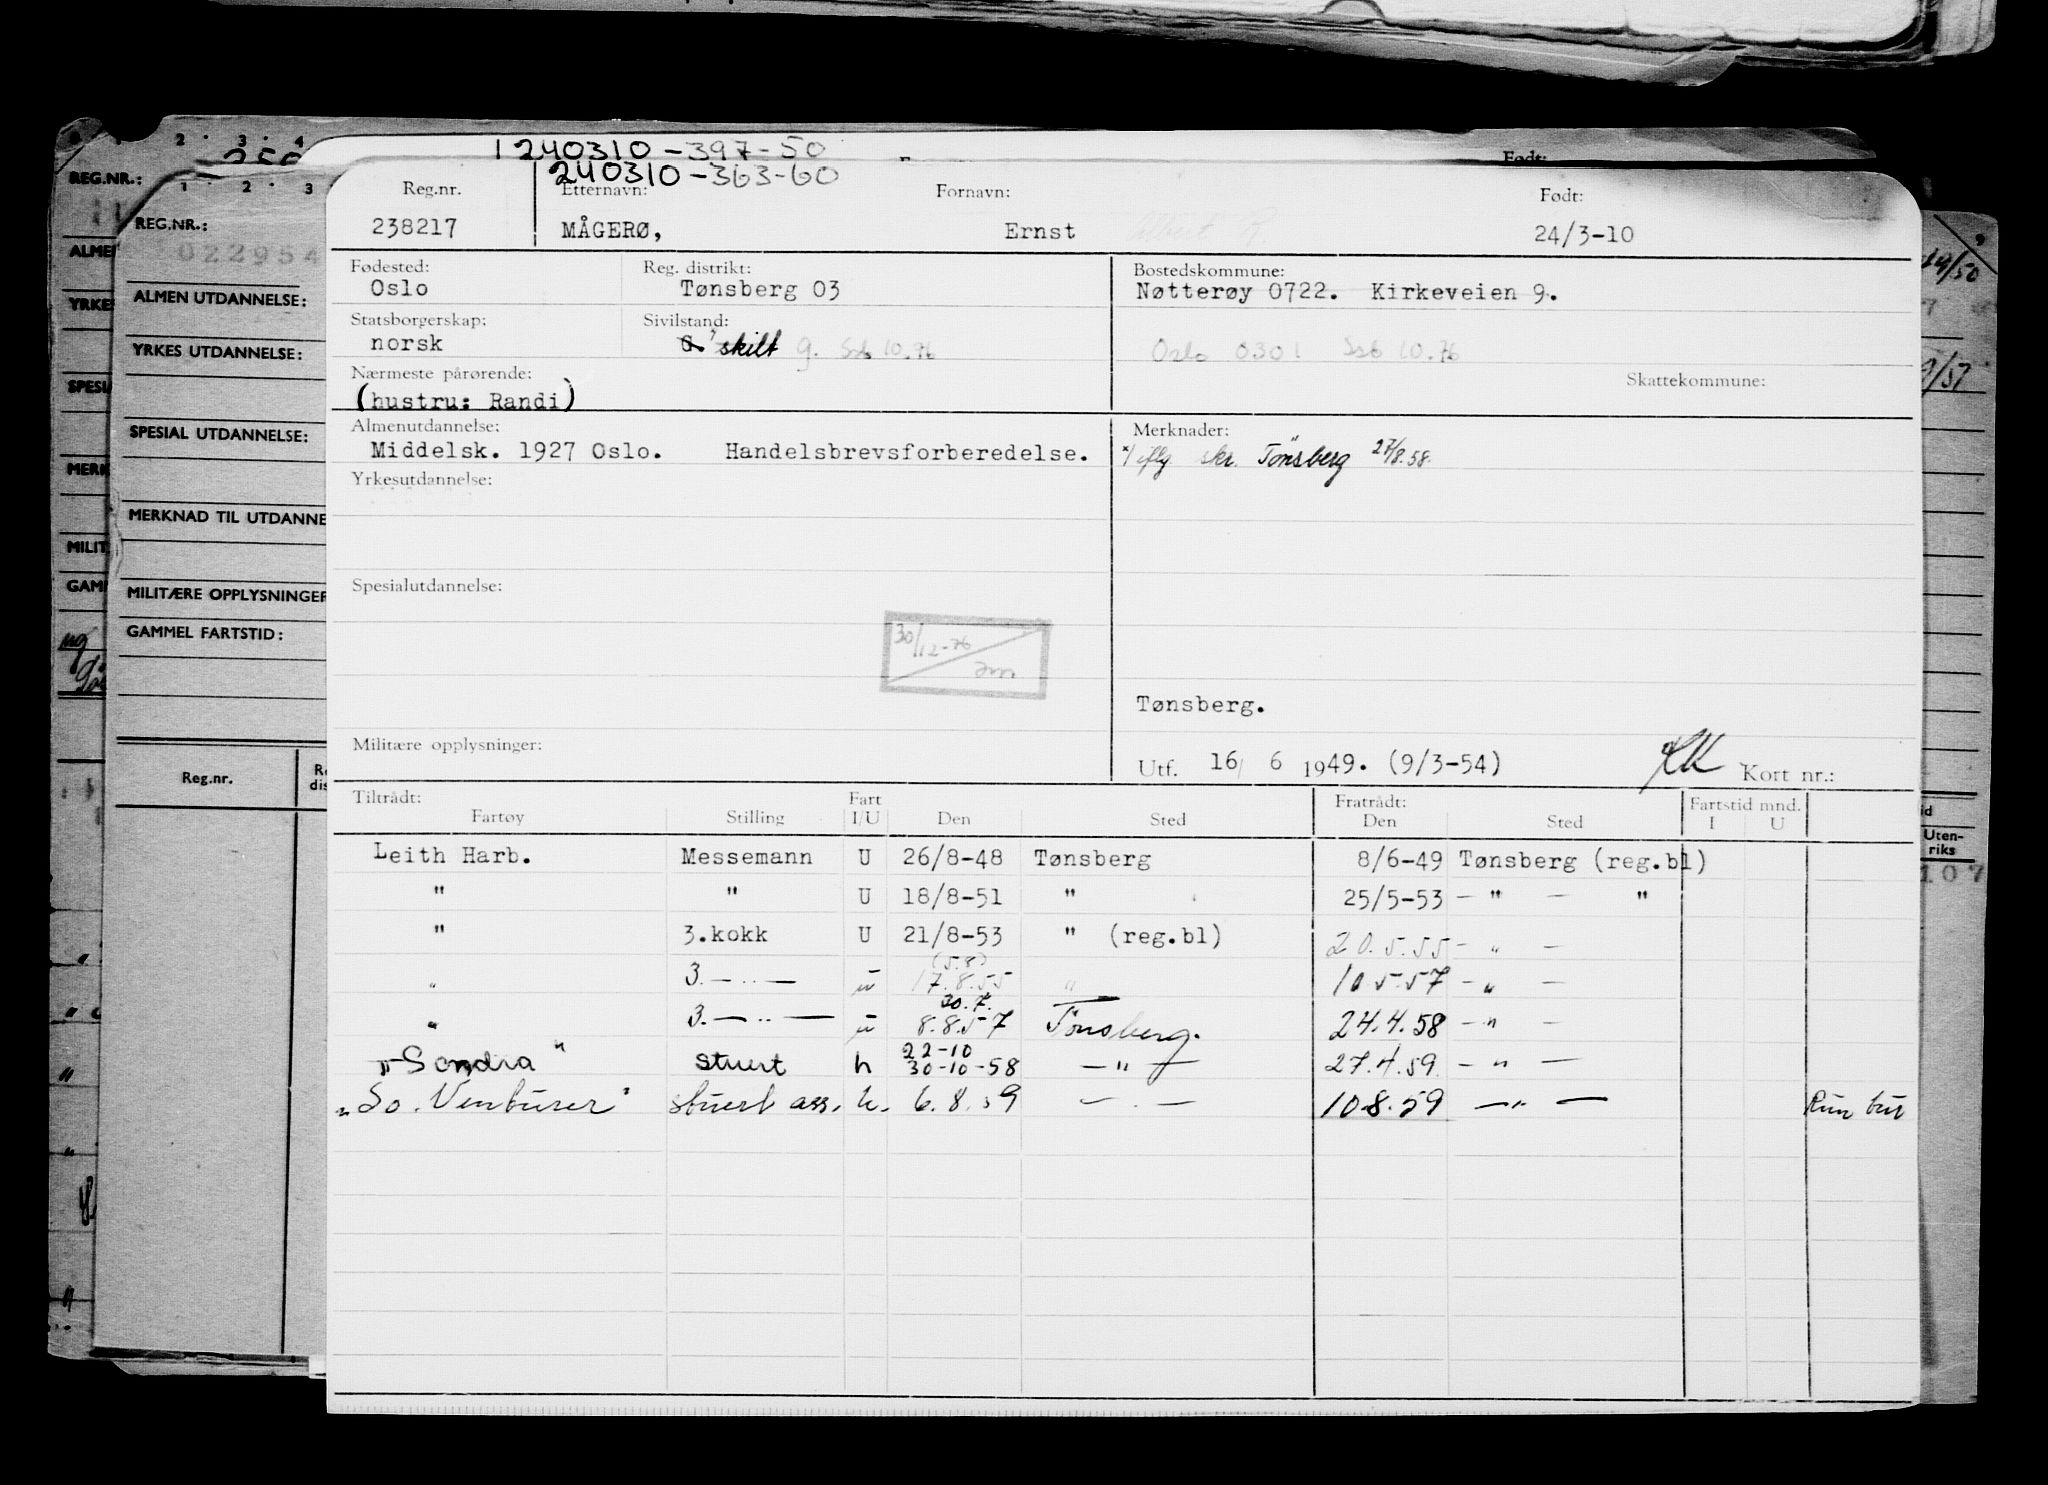 1 240310-397-50
240310-363-60
Født:
Reg.nr. Etternavn: Fornavn: Født:
238217 MÅGERØ, Ernst 24/3-10
Fødested: Reg. distrikt: Bostedskommune:
Oslo Tønsberg 03 Nøtterøy 0722. Kirkeveien 9.
Statsborgerskap: Sivilstand:
norsk G. *) skilt g. Ssb 10.76 Oslo 0301 Ssb 10.76
Nærmeste pårørende: Skattekommune:
(hustru: Randi)
Almenutdannelse: Merknader:
Middelsk. 1927 Oslo. Handelsbrevsforberedelse. *) iflg skr. Tönsberg 27/8.58.
Yrkesutdannelse:
Spesialutdannelse:
30/12-76
Tønsberg.
Militære opplysninger:
Utf. 16/ 6 1949. (9/3-54) Kort nr.:
Tiltrådt: Fart Fratrådt: Fartstid mnd.
Fartøy Stilling I/U Den Sted Den Sted I U
Leith Harb. Messemann U 26/8-48 Tønsberg 8/6-49 Tønsberg (reg.bl)
" " U 18/8-51 " 25/5-53 - " - "
" 3.kokk U 21/8-53 " (reg.bl) 20.5.55 - " -
(5.8)
" 3. - " - u 17.8.55 " 10.5.57 - " -
30.7.
" 3. - " - u 8.8.57 Tönsberg. 24.4.58 - " -
22-10
"Sondra" stuert h 30-10-58 - " - 27.4.59 - " -
"So. Venturer" stuert ass. u. 6.8.59 - " - 10.8.59 - " -
REG.NR.:
1 · 2 · 3
REG.NR.:
022954
ALMEN UTDANNELSE:
YRKES UTDANNELSE:
SPESIAL UTDANNELSE:
MERKNAD TIL UTDANNE
MILITÆRE OPPLYSNINGER
GAMMEL FARTSTID:
Reg.nr.
2 · 3 · 4
ALME
YRKE
SPESI
MERK
MILIT
GAM
14/50
9/57
Uten-
riks
107